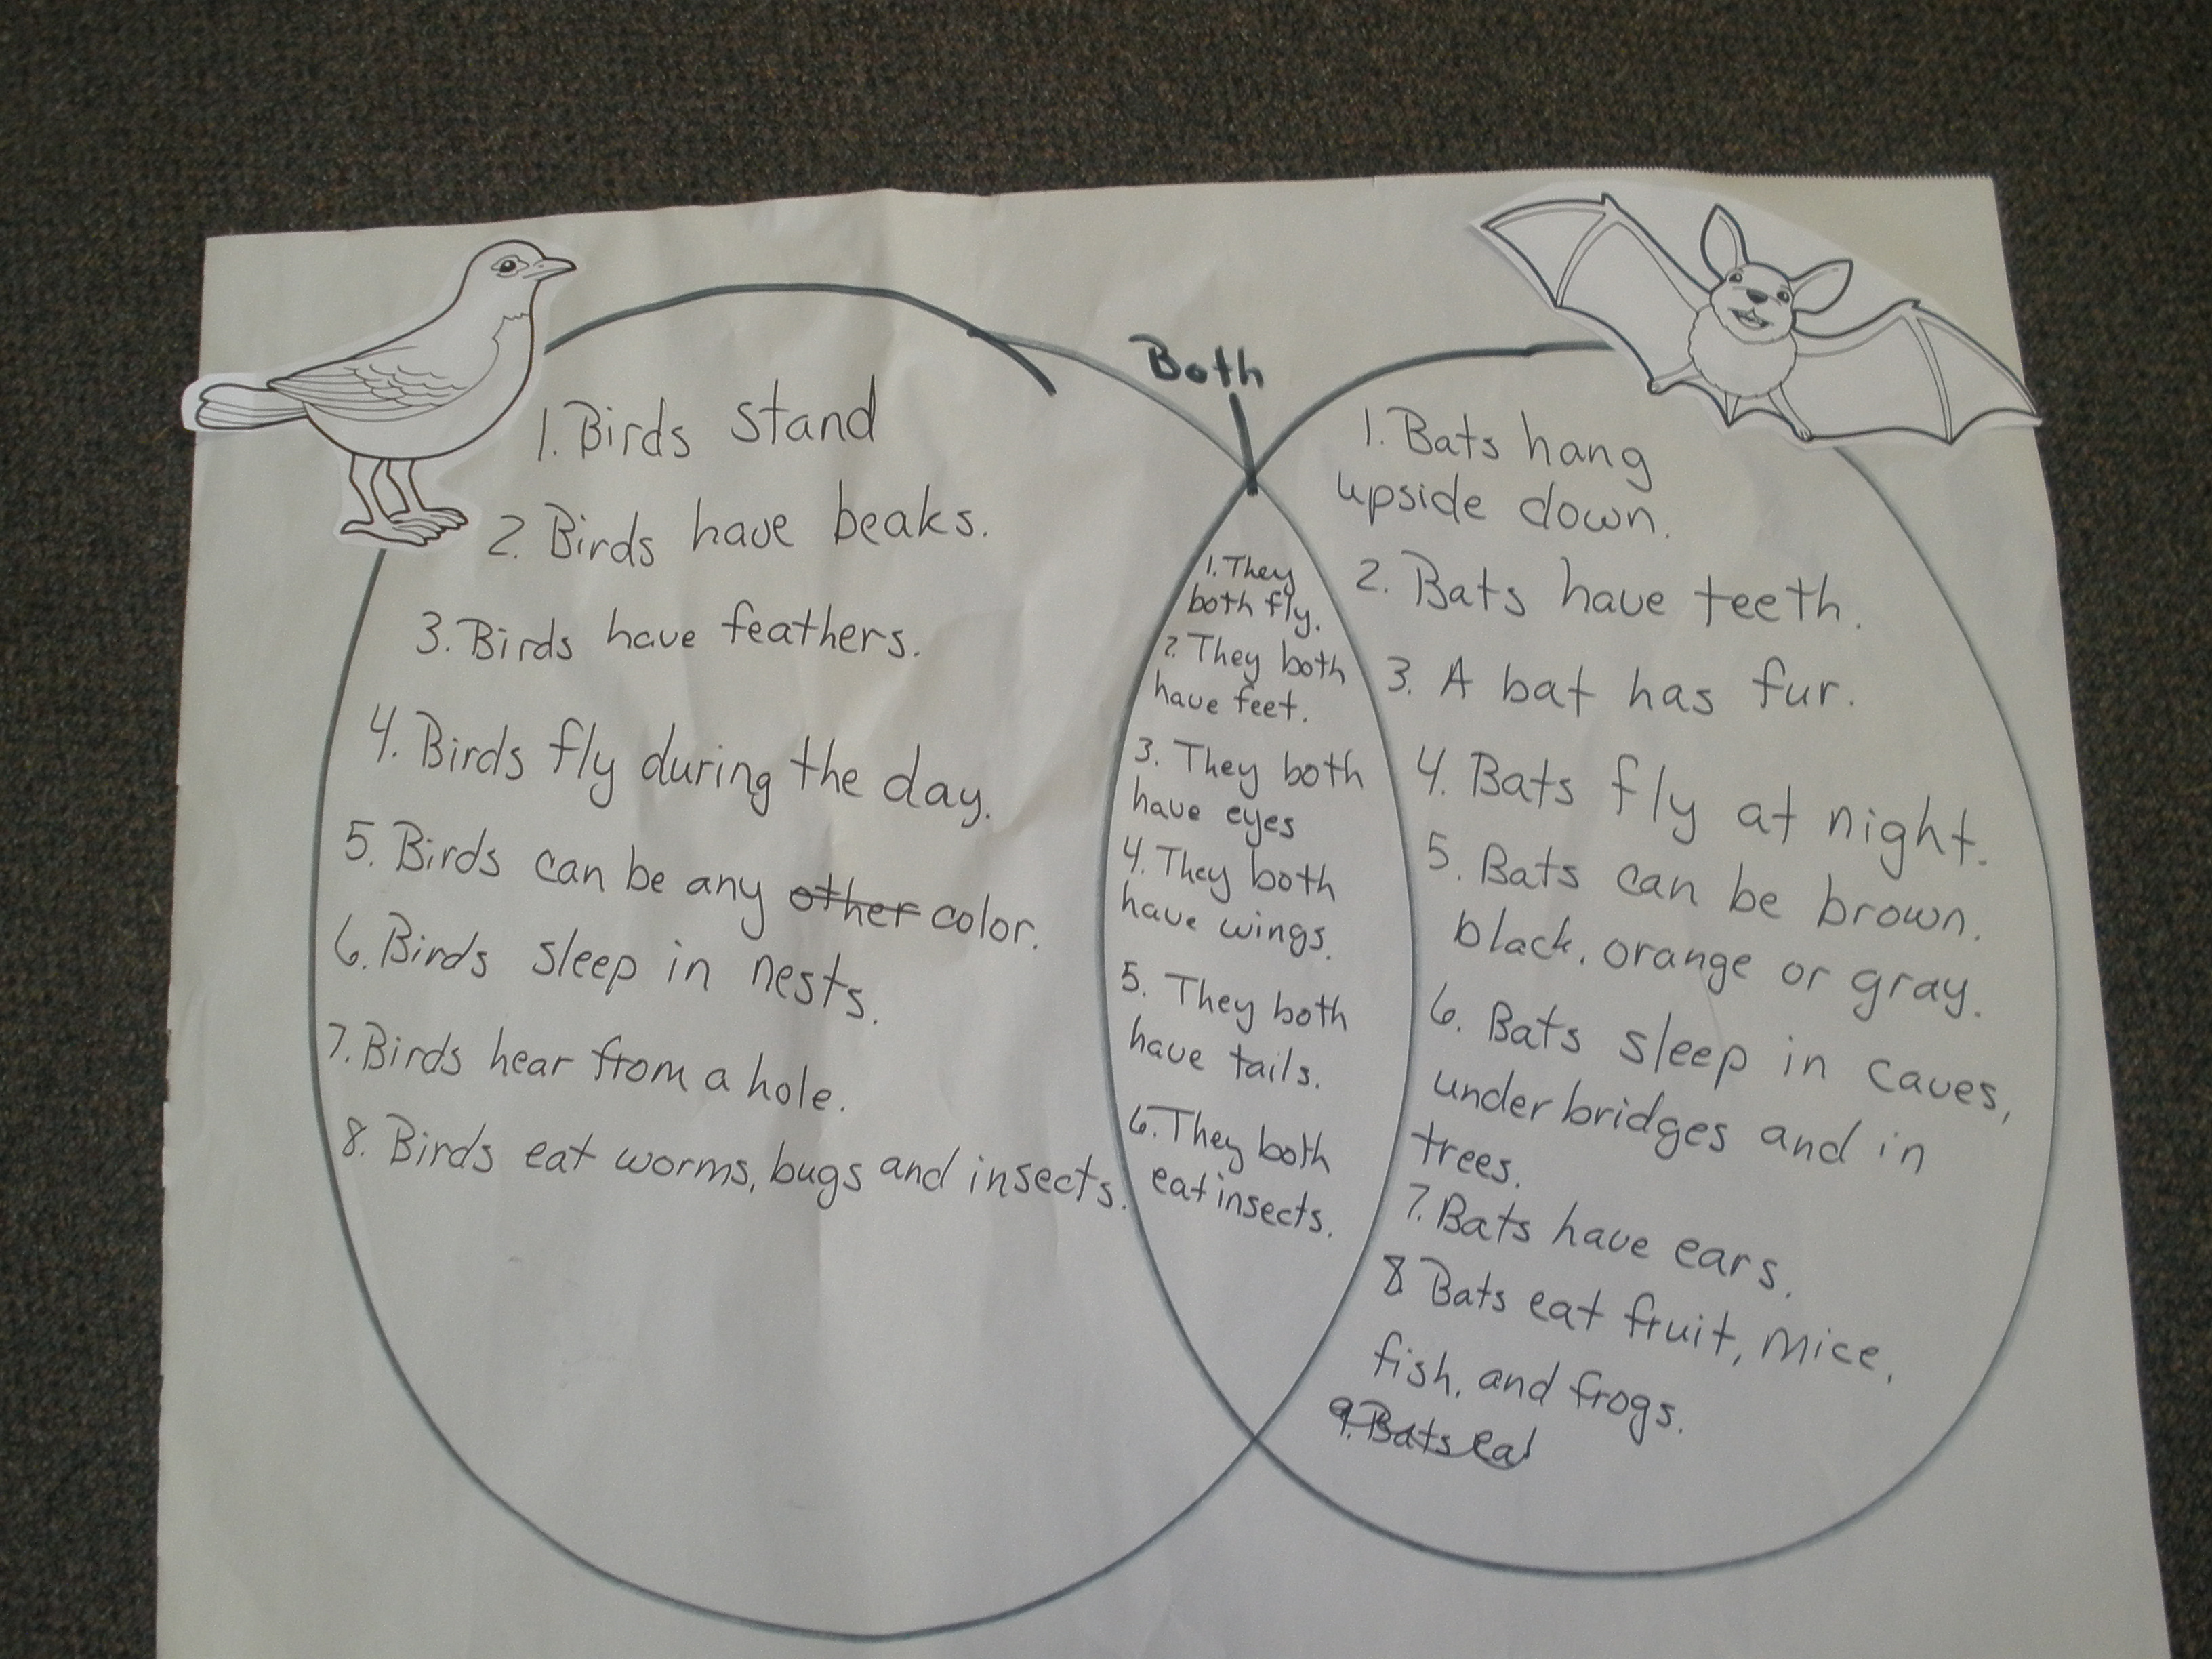 Both
1. Birds stand
2. Birds have beaks.
3. Birds have feathers.
4. Birds fly during the day.
5. Birds can be any other color.
6. Birds sleep in nests.
7. Birds hear from a hole.
8. Birds eat worms, bugs and insects.
1. They
both fly.
2. They both
have feet.
3. They both
have eyes
4. They both
have wings.
5. They both
have tails.
6. They both
eat insects.
1. Bats hang
upside down.
2. Bats have teeth.
3. A bat has fur.
4. Bats fly at night.
5. Bats can be brown.
black, orange or gray.
6. Bats sleep in caves,
under bridges and in
trees.
7. Bats have ears.
8. Bats eat fruit, mice,
fish, and frogs.
9. Bats eat